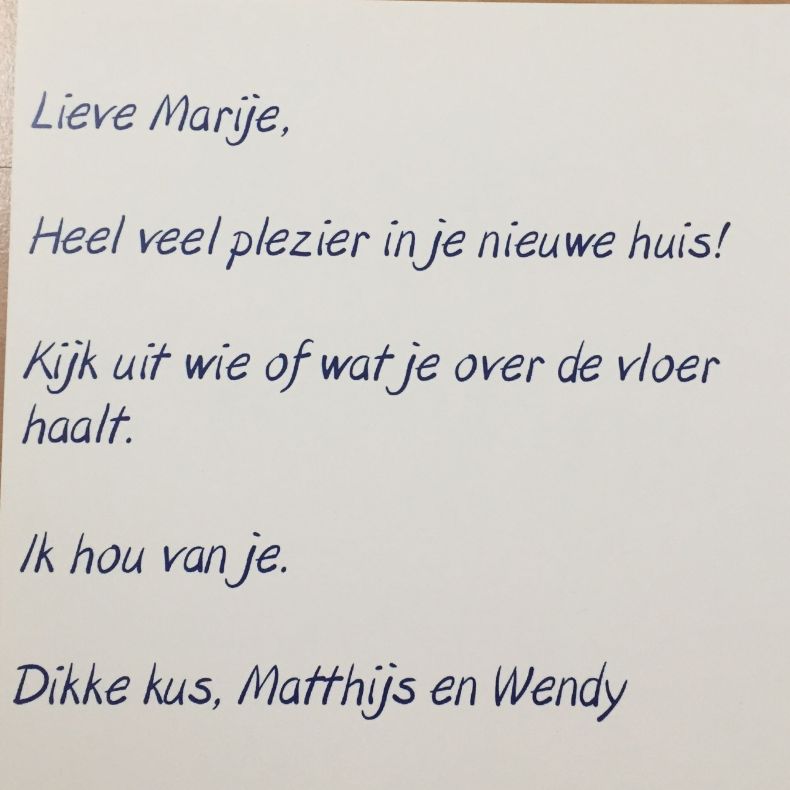 Lieve Marije,
Heel veel plezier in je nieuwe huis!
Kijk uit wie of wat je over de vloer
haalt.
Ik hou van je.
Dikke kus, Matthijs en Wendy